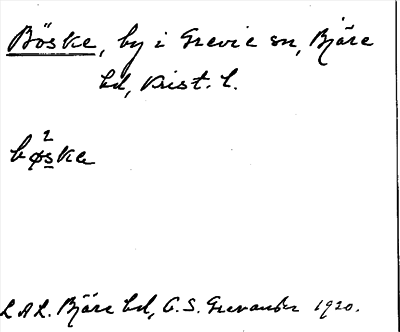 Böske, by i Grevie sn, Bjäre
hd, Krist. l.
bø²ske
L A L. Bjäre hd, C. S. Grevander 1920.